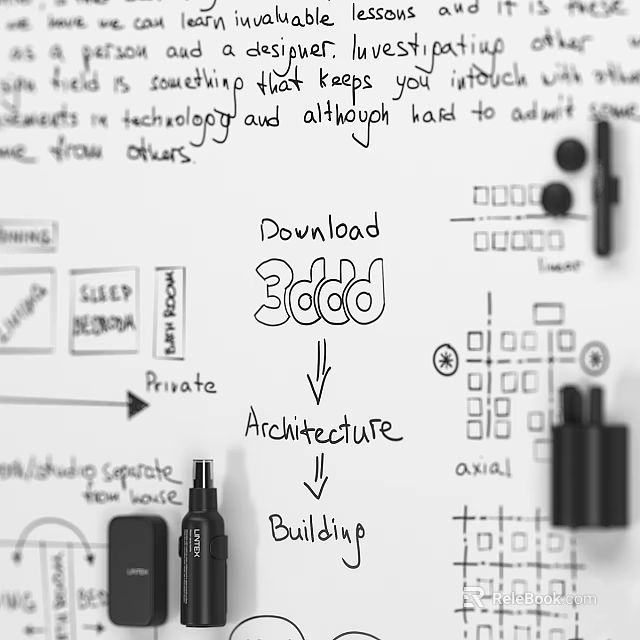 we have we can learn invaluable lessons and it is these
as a person and a designer. Investigating other
field is something that keeps you intouch with
in technology and although hard to admit some
from others.
Download
3ddd
Architecture
Building
SLEEP
BEDROOM
BATH ROOM
Private
studio separate
from house
linear
axial
UNTEK
UNTEK
ReleBook.com